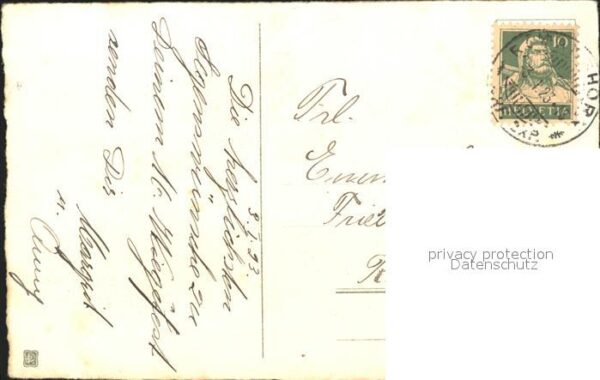 3. I. 23.
Die herzlichsten
Segenswünsche zu
Deinem 16. Wiegefest
senden Dir
Margrit
u. Anny
Frl.
10
HELVETIA
HOR
privacy protection
Datenschutz